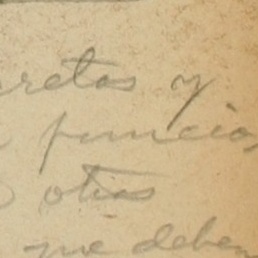 retos y
funcio
otras
que deben